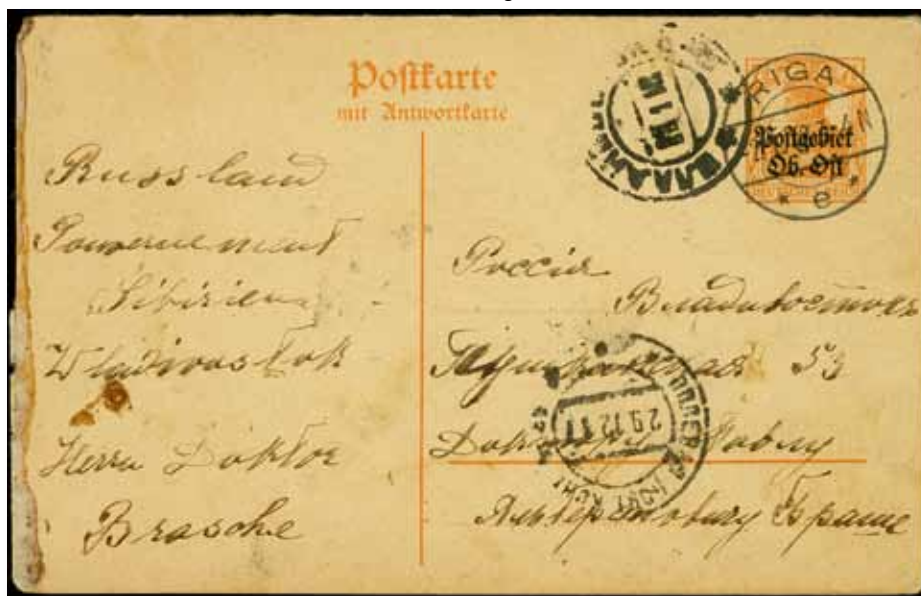 Postkarte
mit Antwortkarte
RIGA
Postgebiet
Ob. Ost
* e *
Russland
Gouvernement
Sibirien
Wladiwostok
Herrn Doktor
Brasche
Россія
Владивостокъ
53
29.12.17
Павлу
Браше